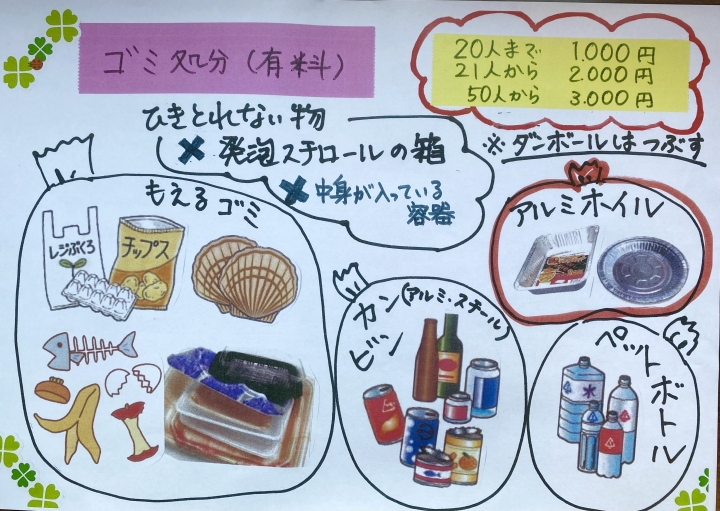 ゴミ処分（有料）
20人まで 1.000円
21人から 2.000円
50人から 3.000円
ひきとれない物
✖ 発泡スチロールの箱
✖ 中身が入っている
容器
※ダンボールはつぶす
もえるゴミ
レジぶくろ
チップス
アルミホイル
カン(アルミ・スチール)
ビン
ペットボトル